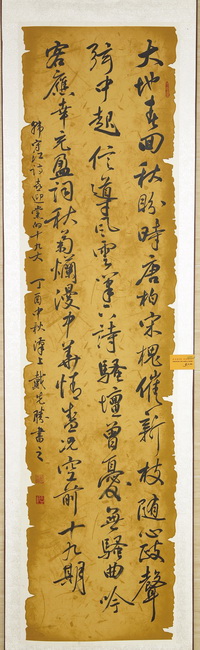 大地春回秋盼時唐柏宋槐催新枝隨心歌聲
弦中起信道風雲筆下詩騷壇曾憂無騷曲吟
客應幸元盈詞秋菊爛漫中華情盛況空前十九期
韩守江詩喜迎党的十九大 丁酉中秋 戴光勝書之